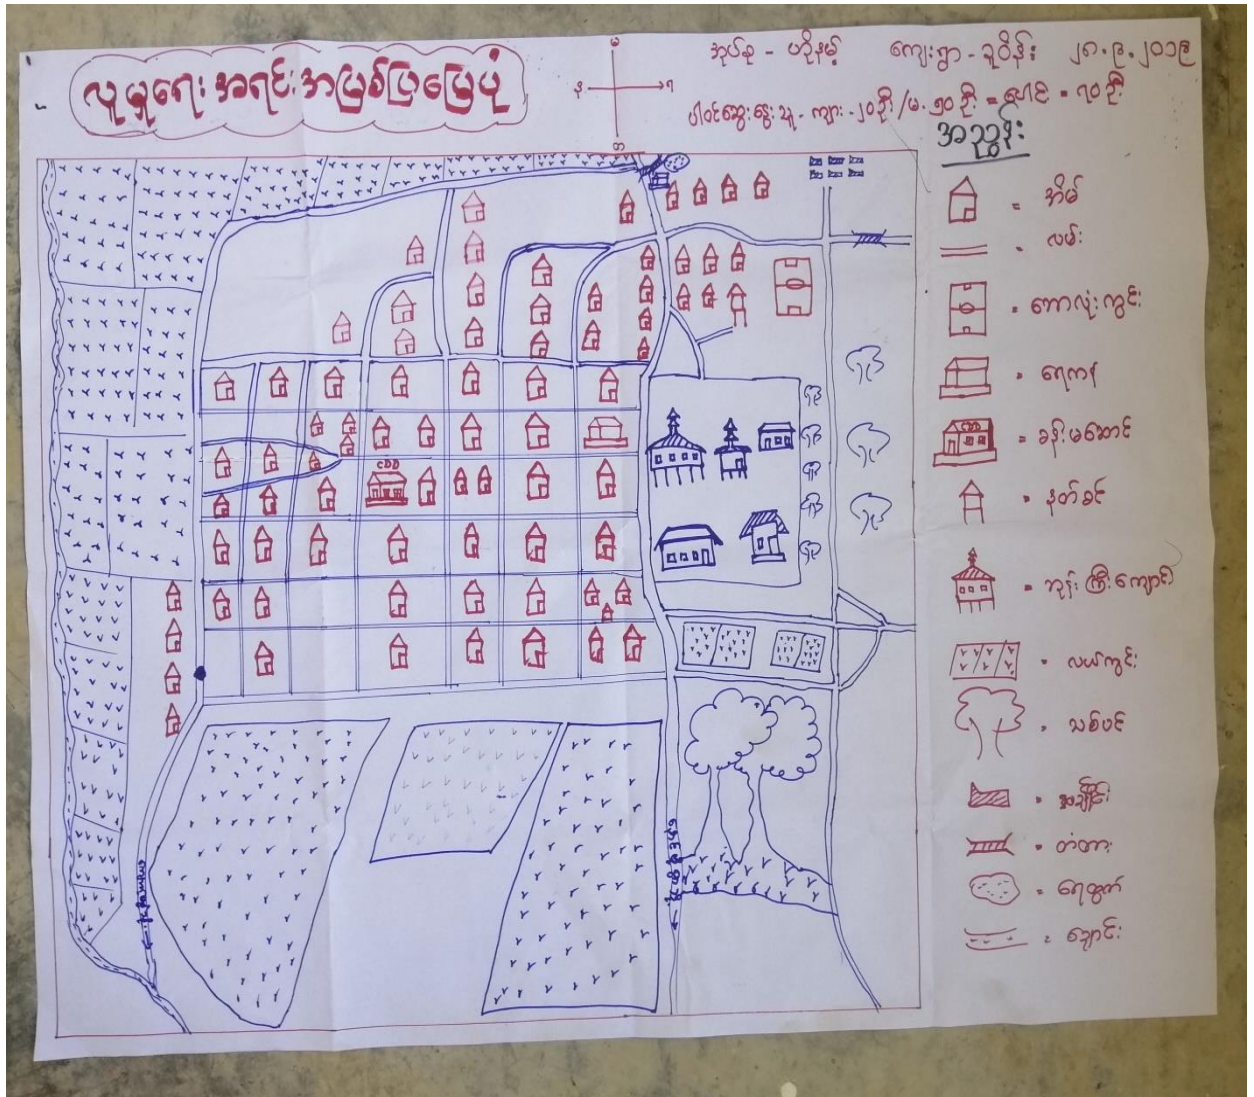 လူမှုရေး အရင်းအမြစ်ပြမြေပုံ
မ
န
ရ
တ
အုပ်စု - ဟိုနမ့် ကျေးရွာ - ခူဝိန်း ၂၈.၉.၂၀၁၉
ပါဝင်ဆွေးနွေးသူ - ကျား - ၂၀ ဦး / မ - ၅၀ ဦး = ပေါင်း = ၇၀ ဦး
အညွှန်း
= အိမ်
= လမ်း
= ဘောလုံးကွင်း
= ရေကန်
CDD
= ခန်းမဆောင်
= နတ်စင်
= ဘုန်းကြီးကျောင်း
= လယ်ကွင်း
= သစ်ပင်
= တံတား
= ရေထွက်
= ချောင်း
CDD